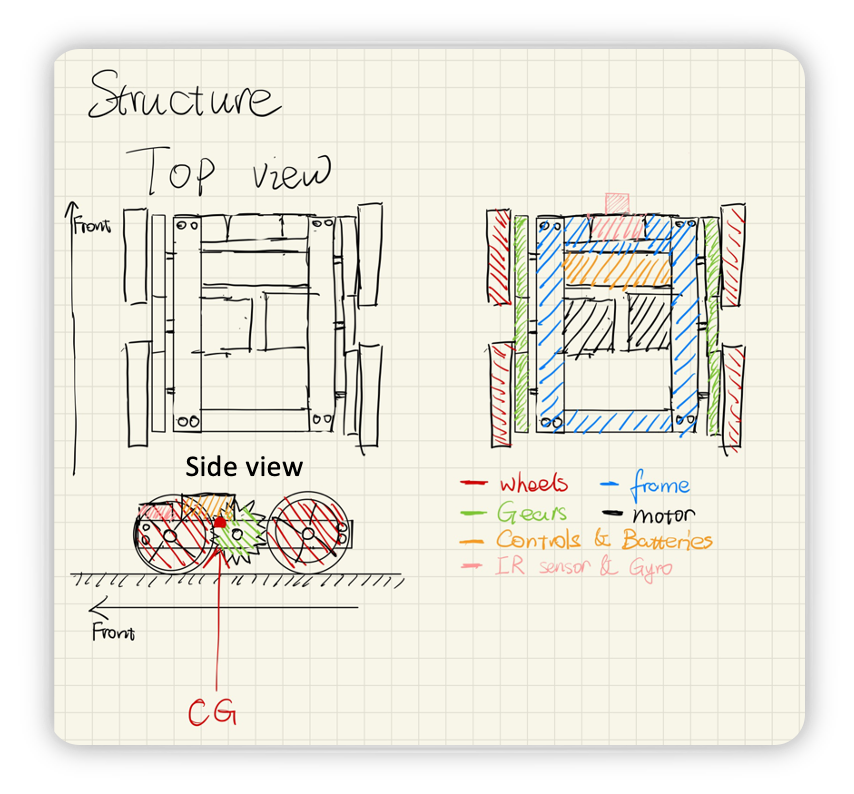 Structure
Top view
Front
Side view
wheels
frame
Gears
motor
Controls & Batteries
IR sensor & Gyro
Front
CG